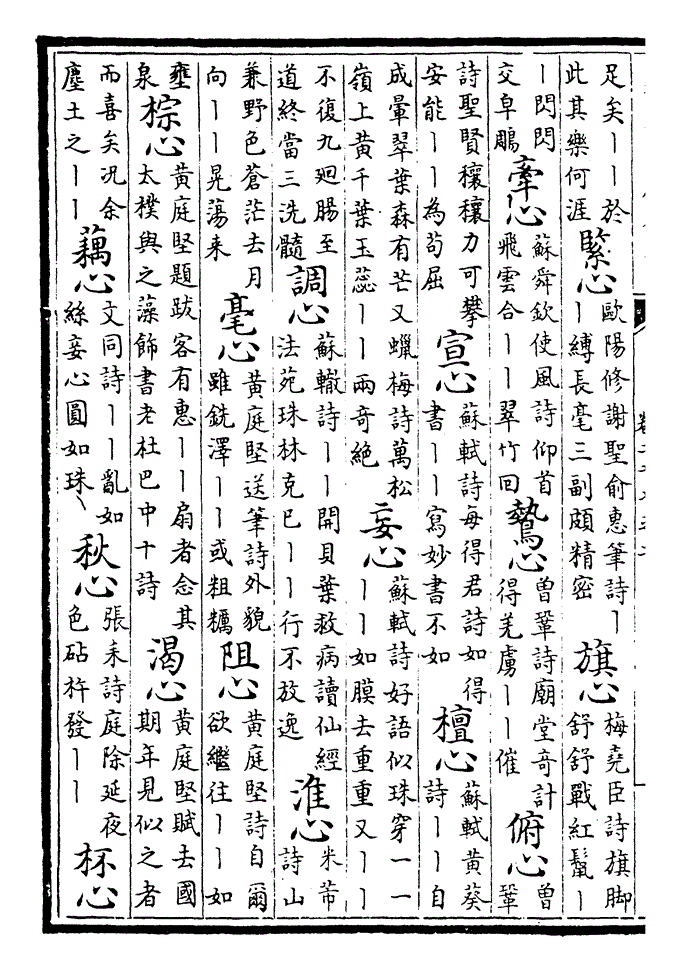 足矣丨丨於此其樂何涯 緊心 歐陽修謝聖俞惠筆詩丨丨縛長毫三副頗精密 旗心 梅堯臣詩旗脚舒舒戰紅鬣丨
丨閃閃交阜鵰 牽心 蘇舜欽使風詩仰首飛雲合丨丨翠竹回 鷙心 曾鞏詩廟堂奇計得羌虜丨丨催 俯心 曾鞏
詩聖賢穰穰力可攀安能丨丨為苟屈 宣心 蘇軾詩每得君詩如得書丨丨寫妙書不如 檀心 蘇軾黃葵詩丨丨自
成暈翠葉森有芒又蠟梅詩萬松嶺上黃千葉玉蕊丨丨兩奇絶 妄心 蘇軾詩好語似珠穿一一丨丨如膜去重重又丨丨
不復九廻腸至道終當三洗髓 調心 蘇轍詩丨丨開貝葉救病讀仙經法苑珠林克巴丨丨行不放逸 淮心 米芾詩山
兼野色蒼茫去月向丨丨晃蕩来 毫心 黃庭堅送筆詩外貌雖銑澤丨丨或粗糲 阻心 黃庭堅詩自爾欲繼往丨丨如
壅泉 棕心 黃庭堅題跋客有惠丨丨扇者念其太樸與之藻飾書老杜巴中十詩 渴心 黃庭堅賦去國期年見似之者
而喜矣况余塵土之丨丨 藕心 文同詩丨丨亂如絲妄心圓如珠丶 秋心 張耒詩庭除延夜色砧杵發丨丨 杯心